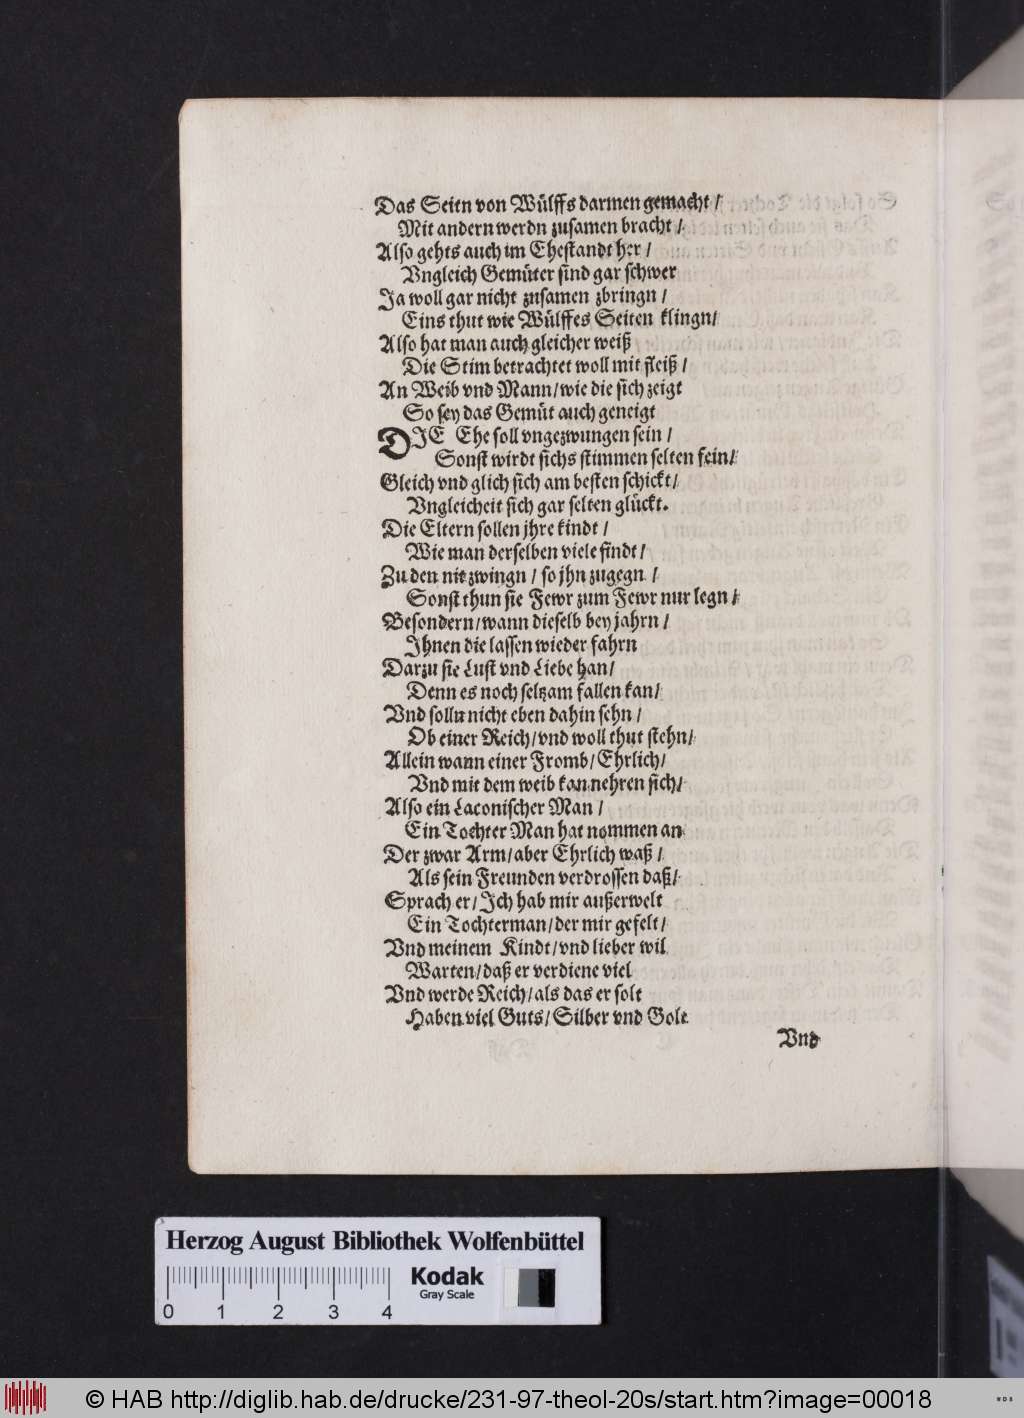 Das Seitn von Wülffs darmen gemacht /
Mit andern werdn zusamen bracht /
Also gehts auch im Ehestandt her /
Vngleich Gemüter sind gar schwer
Ja woll gar nicht zusamen zbringn /
Eins thut wie Wülffes Seiten klingn /
Also hat man auch gleicher weiß
Die Stim betrachtet woll mit fleiß /
An Weib vnd Mann / wie die sich zeigt
So sey das Gemüt auch geneigt
DIE Ehe soll vngezwungen sein /
Sonst wirdt sichs stimmen selten fein /
Gleich vnd glich sich am besten schickt /
Vngleicheit sich gar selten glückt.
Die Eltern sollen jhre kindt /
Wie man derselben viele findt /
Zu den nie zwingn / so jhn zugegn /
Sonst thun sie Fewr zum Fewr nur legn /
Besondern / wann dieselb bey jahrn /
Ihnen die lassen wieder fahrn
Darzu sie Lust vnd Liebe han /
Denn es noch seltzam fallen kan /
Vnd solln nicht eben dahin sehn /
Ob einer Reich / vnd woll thut stehn /
Allein wann einer Fromb / Ehrlich /
Vnd mit dem weib kan nehren sich /
Also ein Laconischer Man /
Ein Tochter Man hat nommen an
Der zwar Arm / aber Ehrlich waß /
Als sein Freunden verdrossen daß /
Sprach er / Ich hab mir außerwelt
Ein Tochterman / der mir gefelt /
Vnd meinem Kindt / vnd lieber wil
Warten / daß er verdiene viel
Vnd werde Reich / als das er solt
Haben viel Guts / Silber vnd Golt
Vnd
Herzog August Bibliothek Wolfenbüttel
Kodak
Gray Scale
0 1 2 3 4
© HAB http://diglib.hab.de/drucke/231-97-theol-20s/start.htm?image=00018